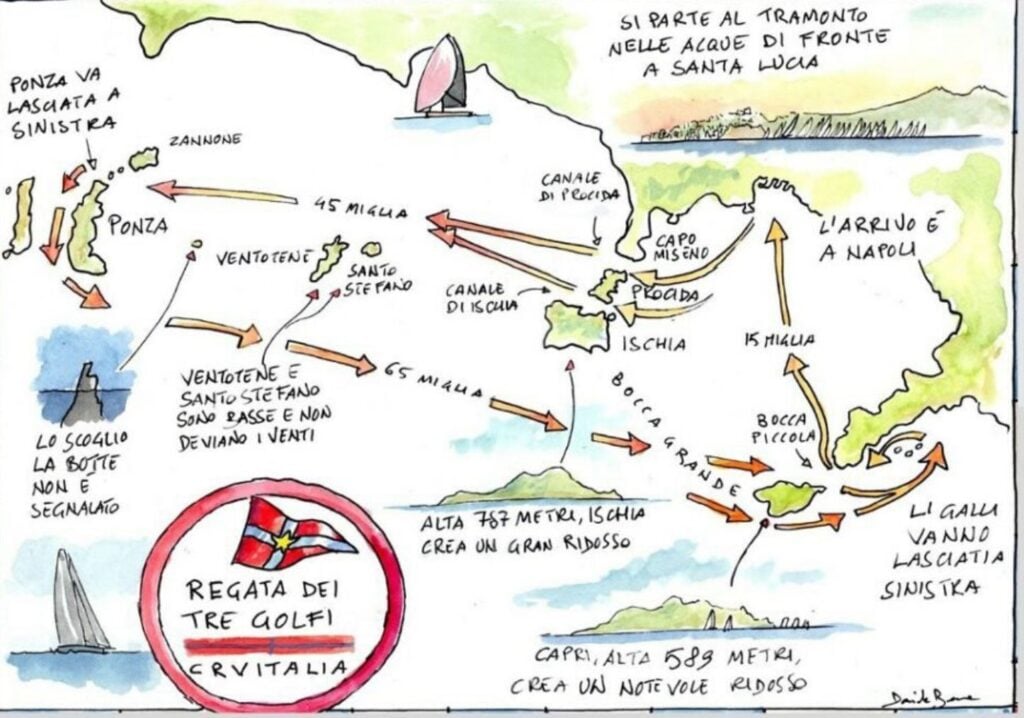 SI PARTE AL TRAMONTO
NELLE ACQUE DI FRONTE
A SANTA LUCIA
PONZA VA
LASCIATA A
SINISTRA
ZANNONE
PONZA
45 MIGLIA
CANALE
DI PROCIDA
CAPO
MISENO
L'ARRIVO È
A NAPOLI
VENTOTENE
SANTO
STEFANO
CANALE
DI ISCHIA
PROCIDA
ISCHIA
15 MIGLIA
65 MIGLIA
VENTOTENE E
SANTO STEFANO
SONO BASSE E NON
DEVIANO I VENTI
BOCCA GRANDE
BOCCA
PICCOLA
LO SCOGLIO
LA BOTTE
NON È
SEGNALATO
ALTA 787 METRI, ISCHIA
CREA UN GRAN RIDOSSO
LI GALLI
VANNO
LASCIATI A
SINISTRA
REGATA DEI
TRE GOLFI
CRVITALIA
CAPRI, ALTA 589 METRI,
CREA UN NOTEVOLE RIDOSSO